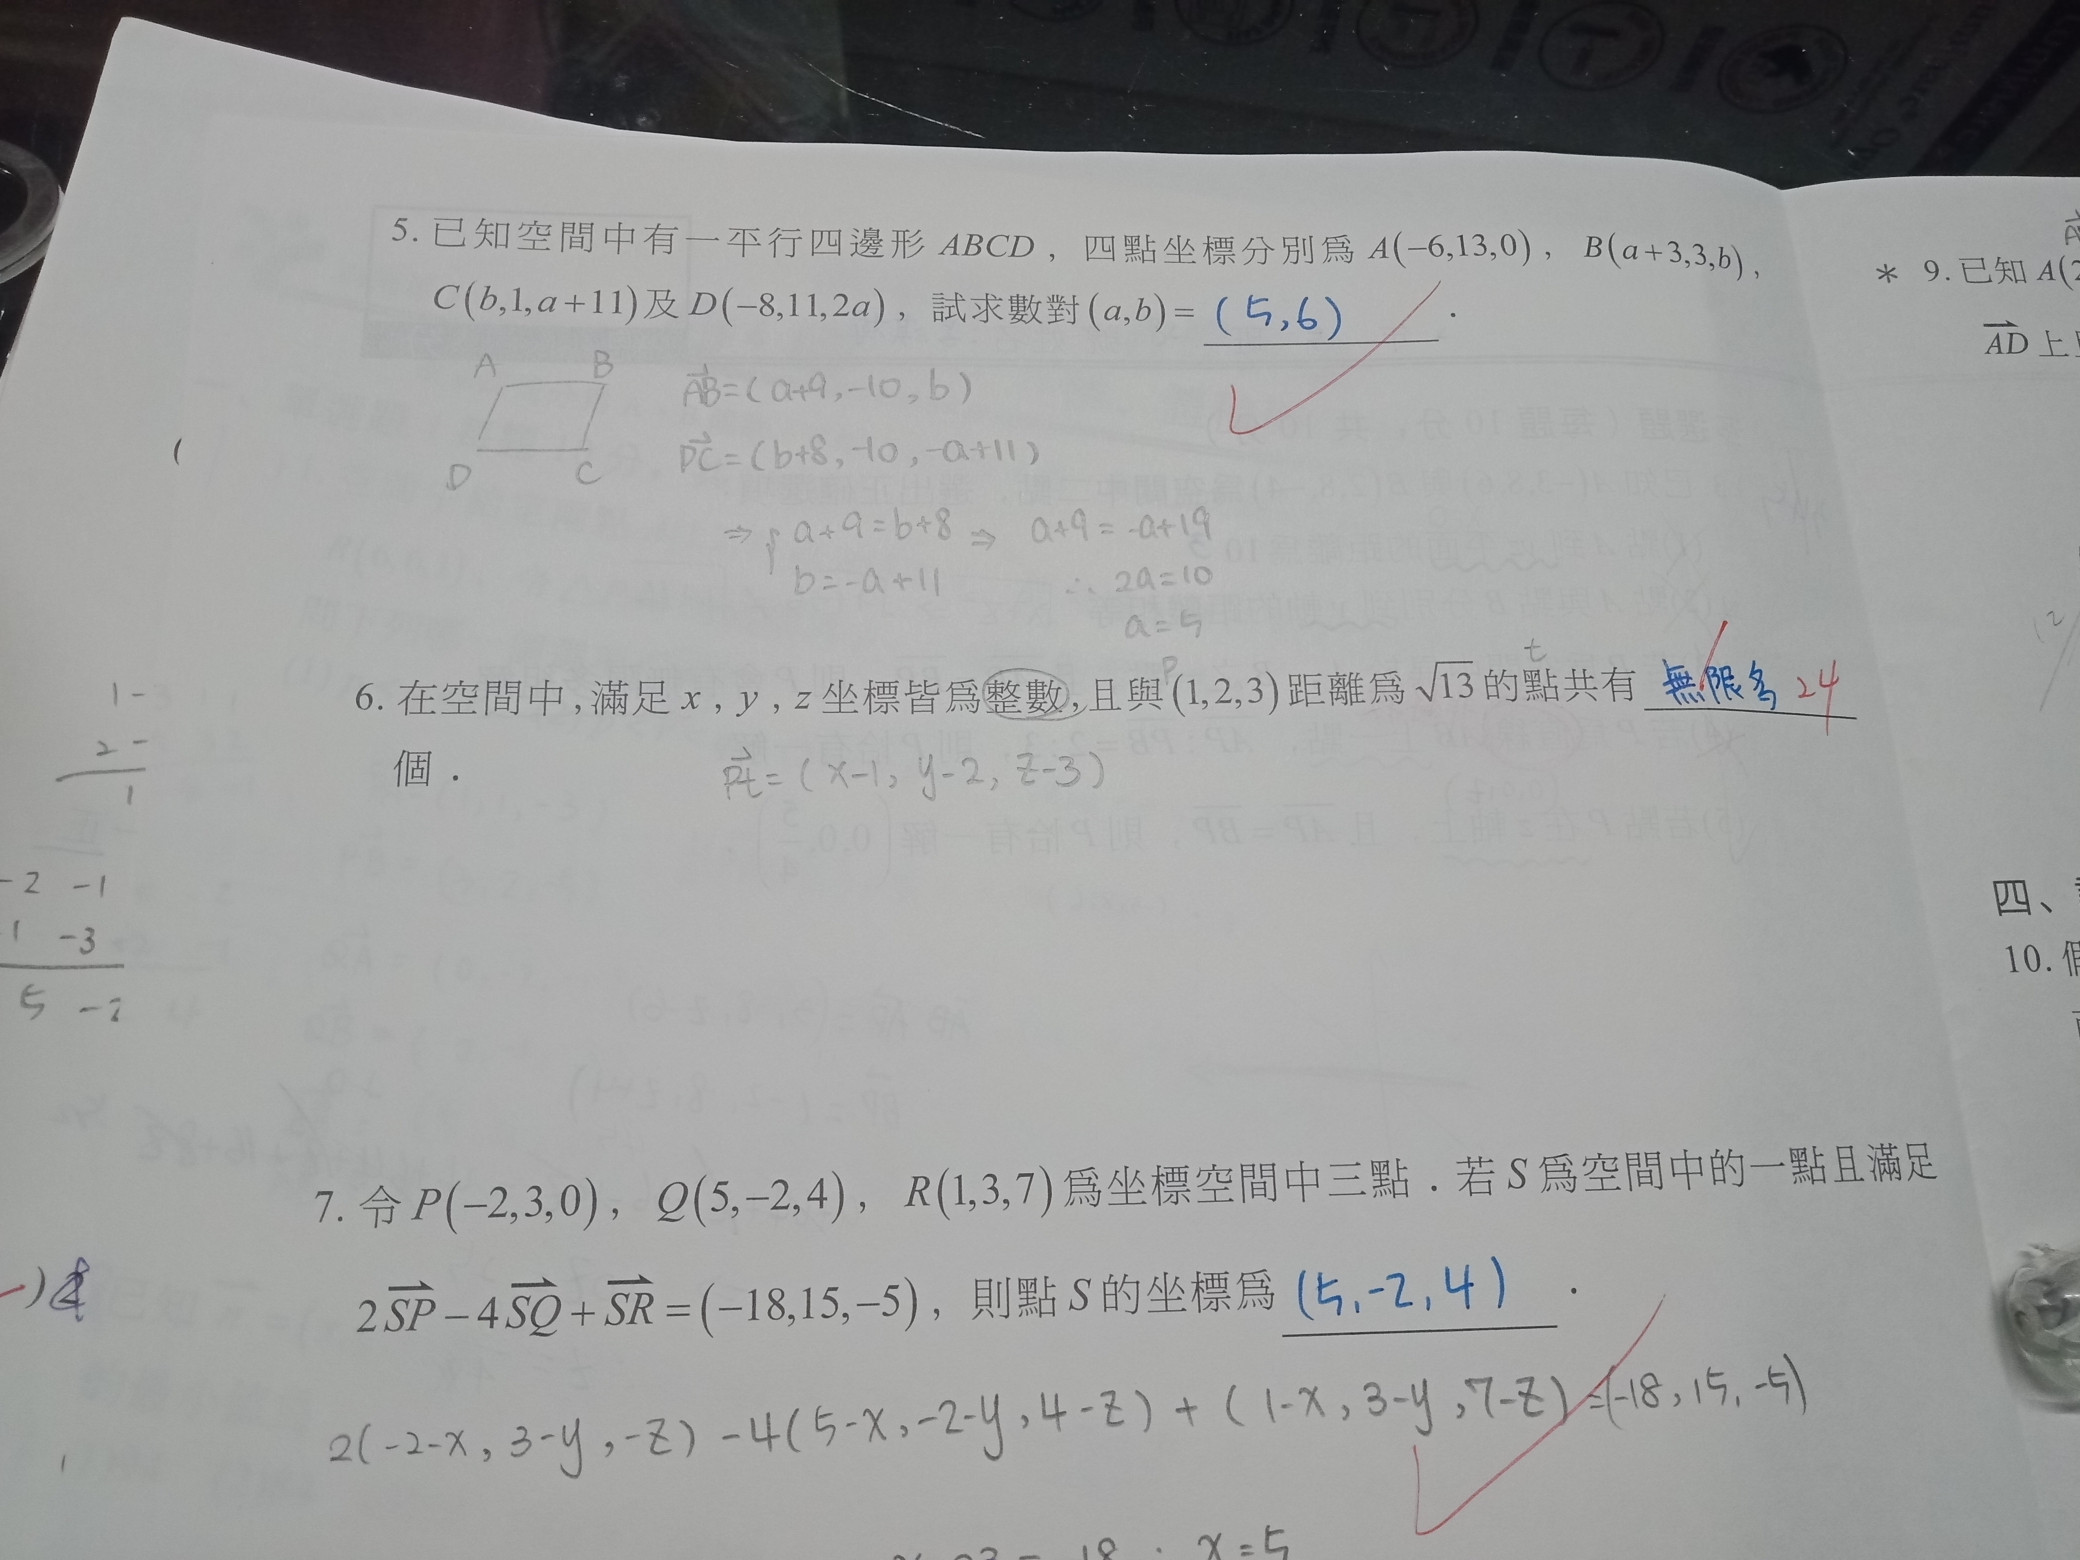 5. 已知空間中有一平行四邊形 ABCD，四點坐標分別為 A(−6,13,0)，B(a+3,3,b)，
C(b,1,a+11)及 D(−8,11,2a)，試求數對(a,b)= (5,6) .
A B
D C
AB=(a+9,-10,b)
DC=(b+8,-10,-a+11)
⇒ { a+9=b+8 ⇒ a+9=-a+19
b=-a+11 ∴ 2a=10
a=5
P t
6. 在空間中,滿足 x , y , z 坐標皆為整數,且與(1,2,3)距離為 √13 的點共有 無限多 24
個 .
Pt=(x-1, y-2, z-3)
7. 令 P(−2,3,0)，Q(5,−2,4)，R(1,3,7)為坐標空間中三點．若 S 為空間中的一點且滿足
2SP−4SQ+SR=(−18,15,−5)，則點 S 的坐標為 (5,-2,4) .
2(-2-x, 3-y, -z) -4(5-x, -2-y, 4-z) + (1-x, 3-y, 7-z) =(-18, 15, -5)
x=5
1 -
2 -
1
-2 -1
1 -3
5 -2
* 9. 已知 A(2
AD 上
四、
10.